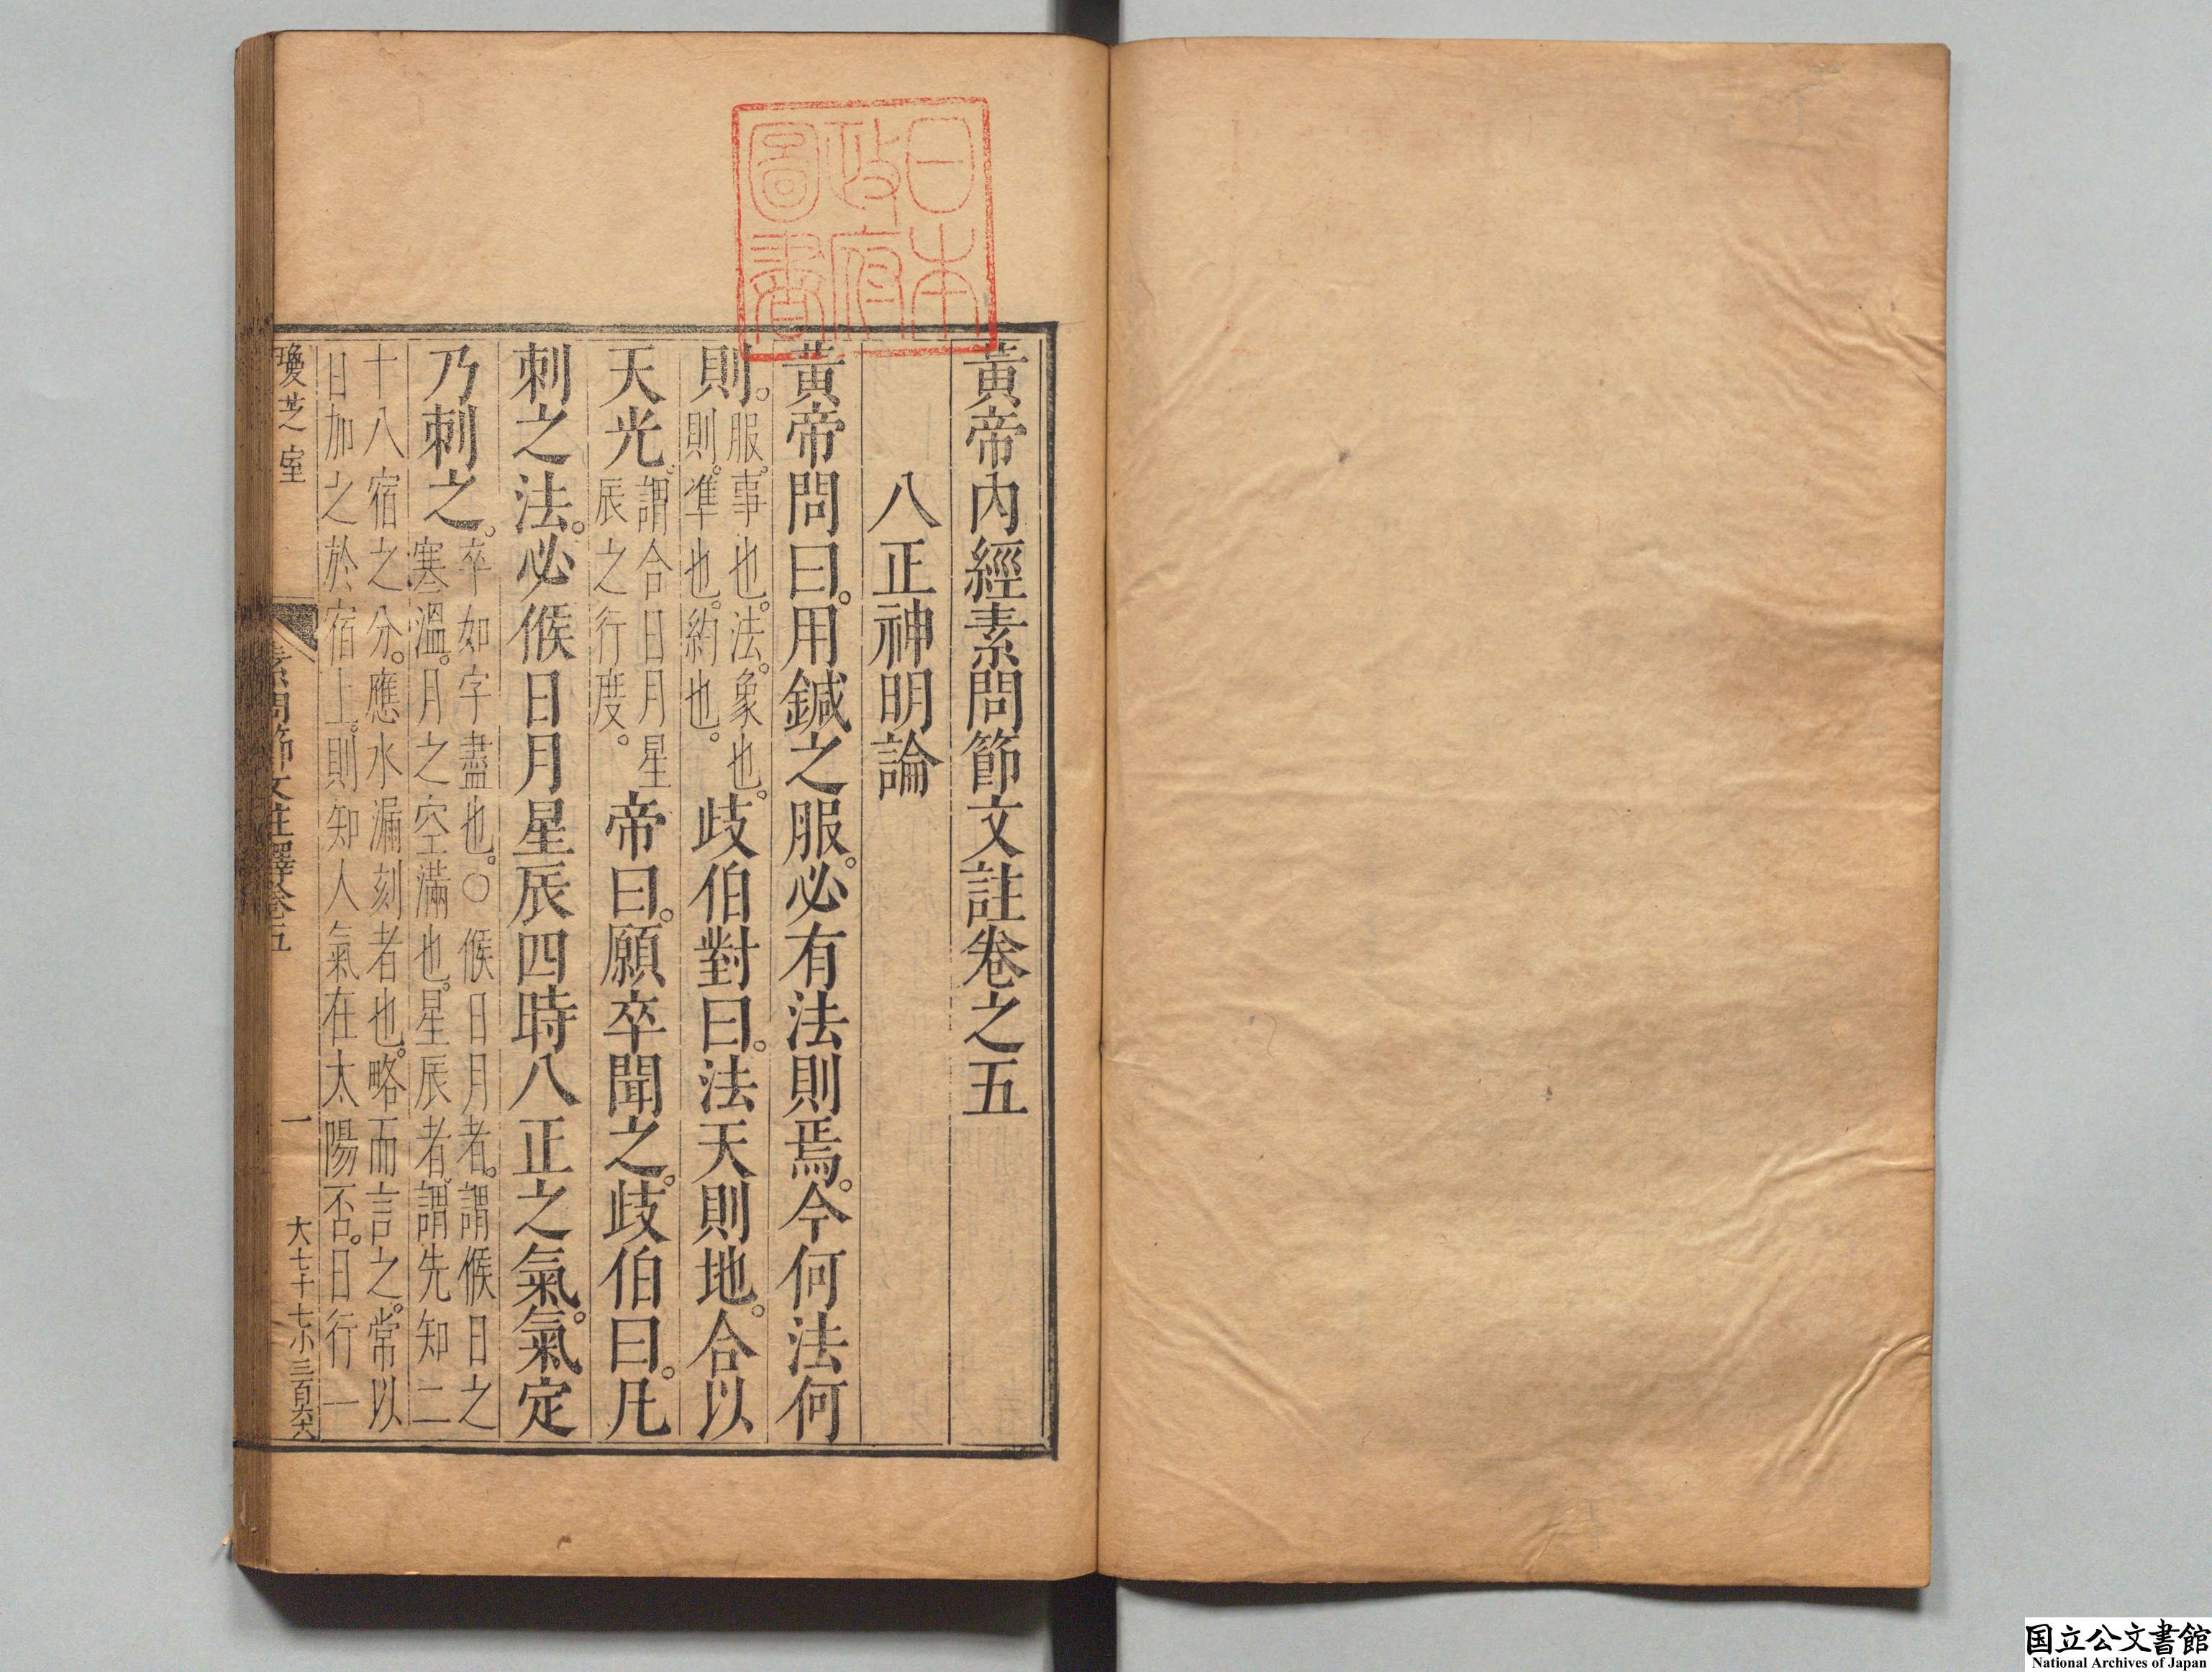 日本
政府
圖書
黃帝內經素問節文註卷之五
八正神明論
黃帝問曰。用鍼之服。必有法則焉。今何法何
則。服。事也。法。象也。則。準也。約也。歧伯對曰。法天則地。合以
天光。謂合日月星辰之行度。帝曰。願卒聞之。歧伯曰。凡
刺之法。必候日月星辰四時八正之氣。氣定
乃刺之。卒如字盡也。○候日月者。謂候日之寒溫。月之空滿也。星辰者。謂先知二
十八宿之分。應水漏刻者也。略而言之。常以
日加之於宿上。則知人氣在太陽否。日行一
瓊芝室
素問節文註釋卷五
一
大七十七小三百六六
国立公文書館
National Archives of Japan